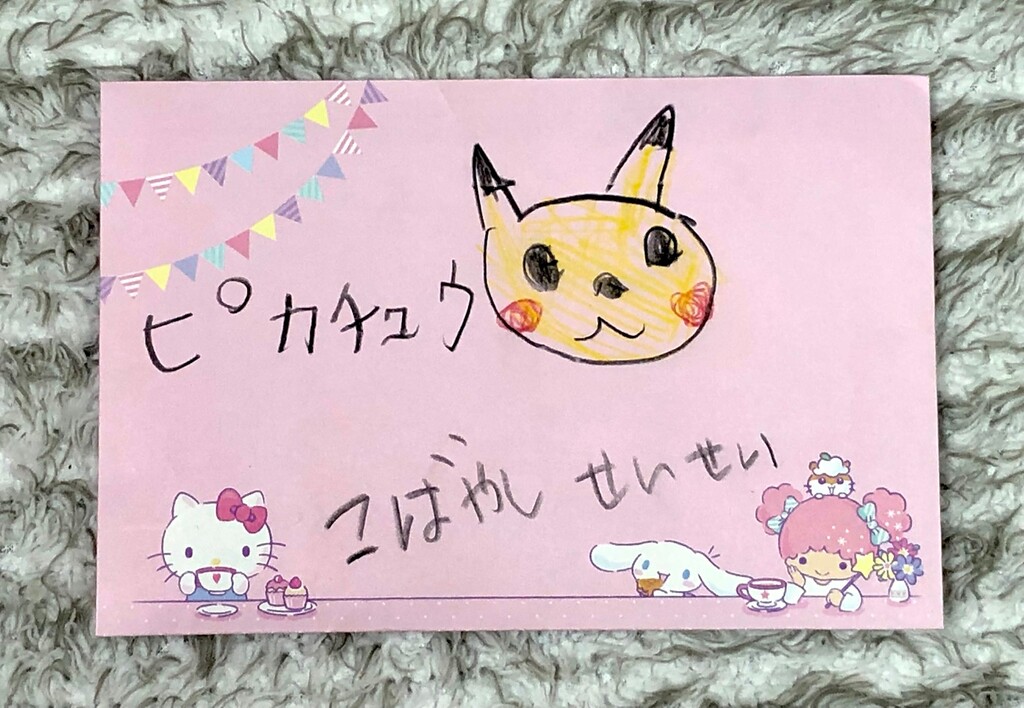 ピカチュウ
こばやし せいせい